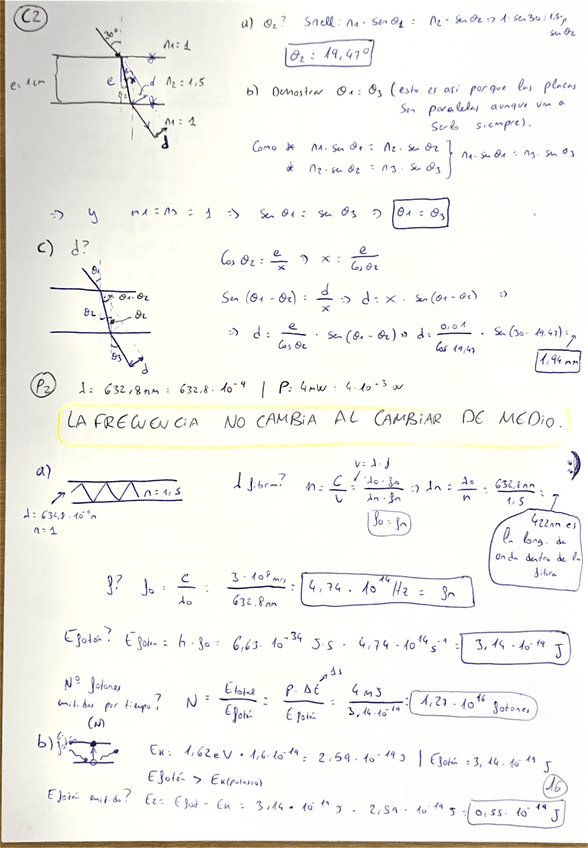 C2
30º
n1 = 1
e = 1cm
e
d
n2 = 1,5
θ2
n1 = 1
d
a) θ2? Snell: n1 · sen θ1 = n2 · sen θ2 => 1 · sen 30 = 1,5 ·
sen θ2
θ2 = 19,47º
b) Demostrar θ1 = θ3 (esto es así porque las placas
son paralelas aunque van a
serlo siempre).
Como * n1 · sen θ1 = n2 · sen θ2
* n2 · sen θ2 = n3 · sen θ3
} n1 · sen θ1 = n3 · sen θ3
=> y n1 = n3 = 1 => sen θ1 = sen θ3 => θ1 = θ3
c) d?
θ1
θ1 - θ2
θ2
θ2
θ3
d
Cos θ2 = e/x => x = e/Cos θ2
Sen (θ1 - θ2) = d/x => d = x · sen (θ1 - θ2) =>
=> d = e/Cos θ2 · sen (θ1 - θ2) => d = 0,01/Cos 19,47 · sen (30 - 19,47) =
1,94 mm
P2 λ = 632,8 nm = 632,8 · 10⁻⁹ | P = 4 mW = 4 · 10⁻³ W
LA FRECUENCIA NO CAMBIA AL CAMBIAR DE MEDIO.
a)
n = 1,5
λ = 632,8 · 10⁻⁹ m
n = 1
v = λ · f
λ fibra? n = C/V = λ0 · f0/λn · fn => λn = λ0/n = 632,8 nm/1,5 =
f0 = fn
422 nm es
la long. de
onda dentro de la
fibra
f? f0 = C/λ0 = 3 · 10⁸ m/s/632,8 nm = 4,74 · 10¹⁴ Hz = fn
Efotón? Efotón = h · f0 = 6,63 · 10⁻³⁴ J·s · 4,74 · 10¹⁴ s⁻¹ = 3,14 · 10⁻¹⁹ J
Nº fotones
emitidos por tiempo?
(N)
1s
N = Etotal/Efotón = P · Δt/Efotón = 4 mJ/3,14 · 10⁻¹⁹ = 1,27 · 10¹⁶ fotones
b)
Ek = 1,62 eV · 1,6 · 10⁻¹⁹ = 2,59 · 10⁻¹⁹ J | Efotón = 3,14 · 10⁻¹⁹ J
Efotón > Ek
16
Efotón emitido? E2 = Efot - Ek = 3,14 · 10⁻¹⁹ J - 2,59 · 10⁻¹⁹ J = 0,55 · 10⁻¹⁹ J